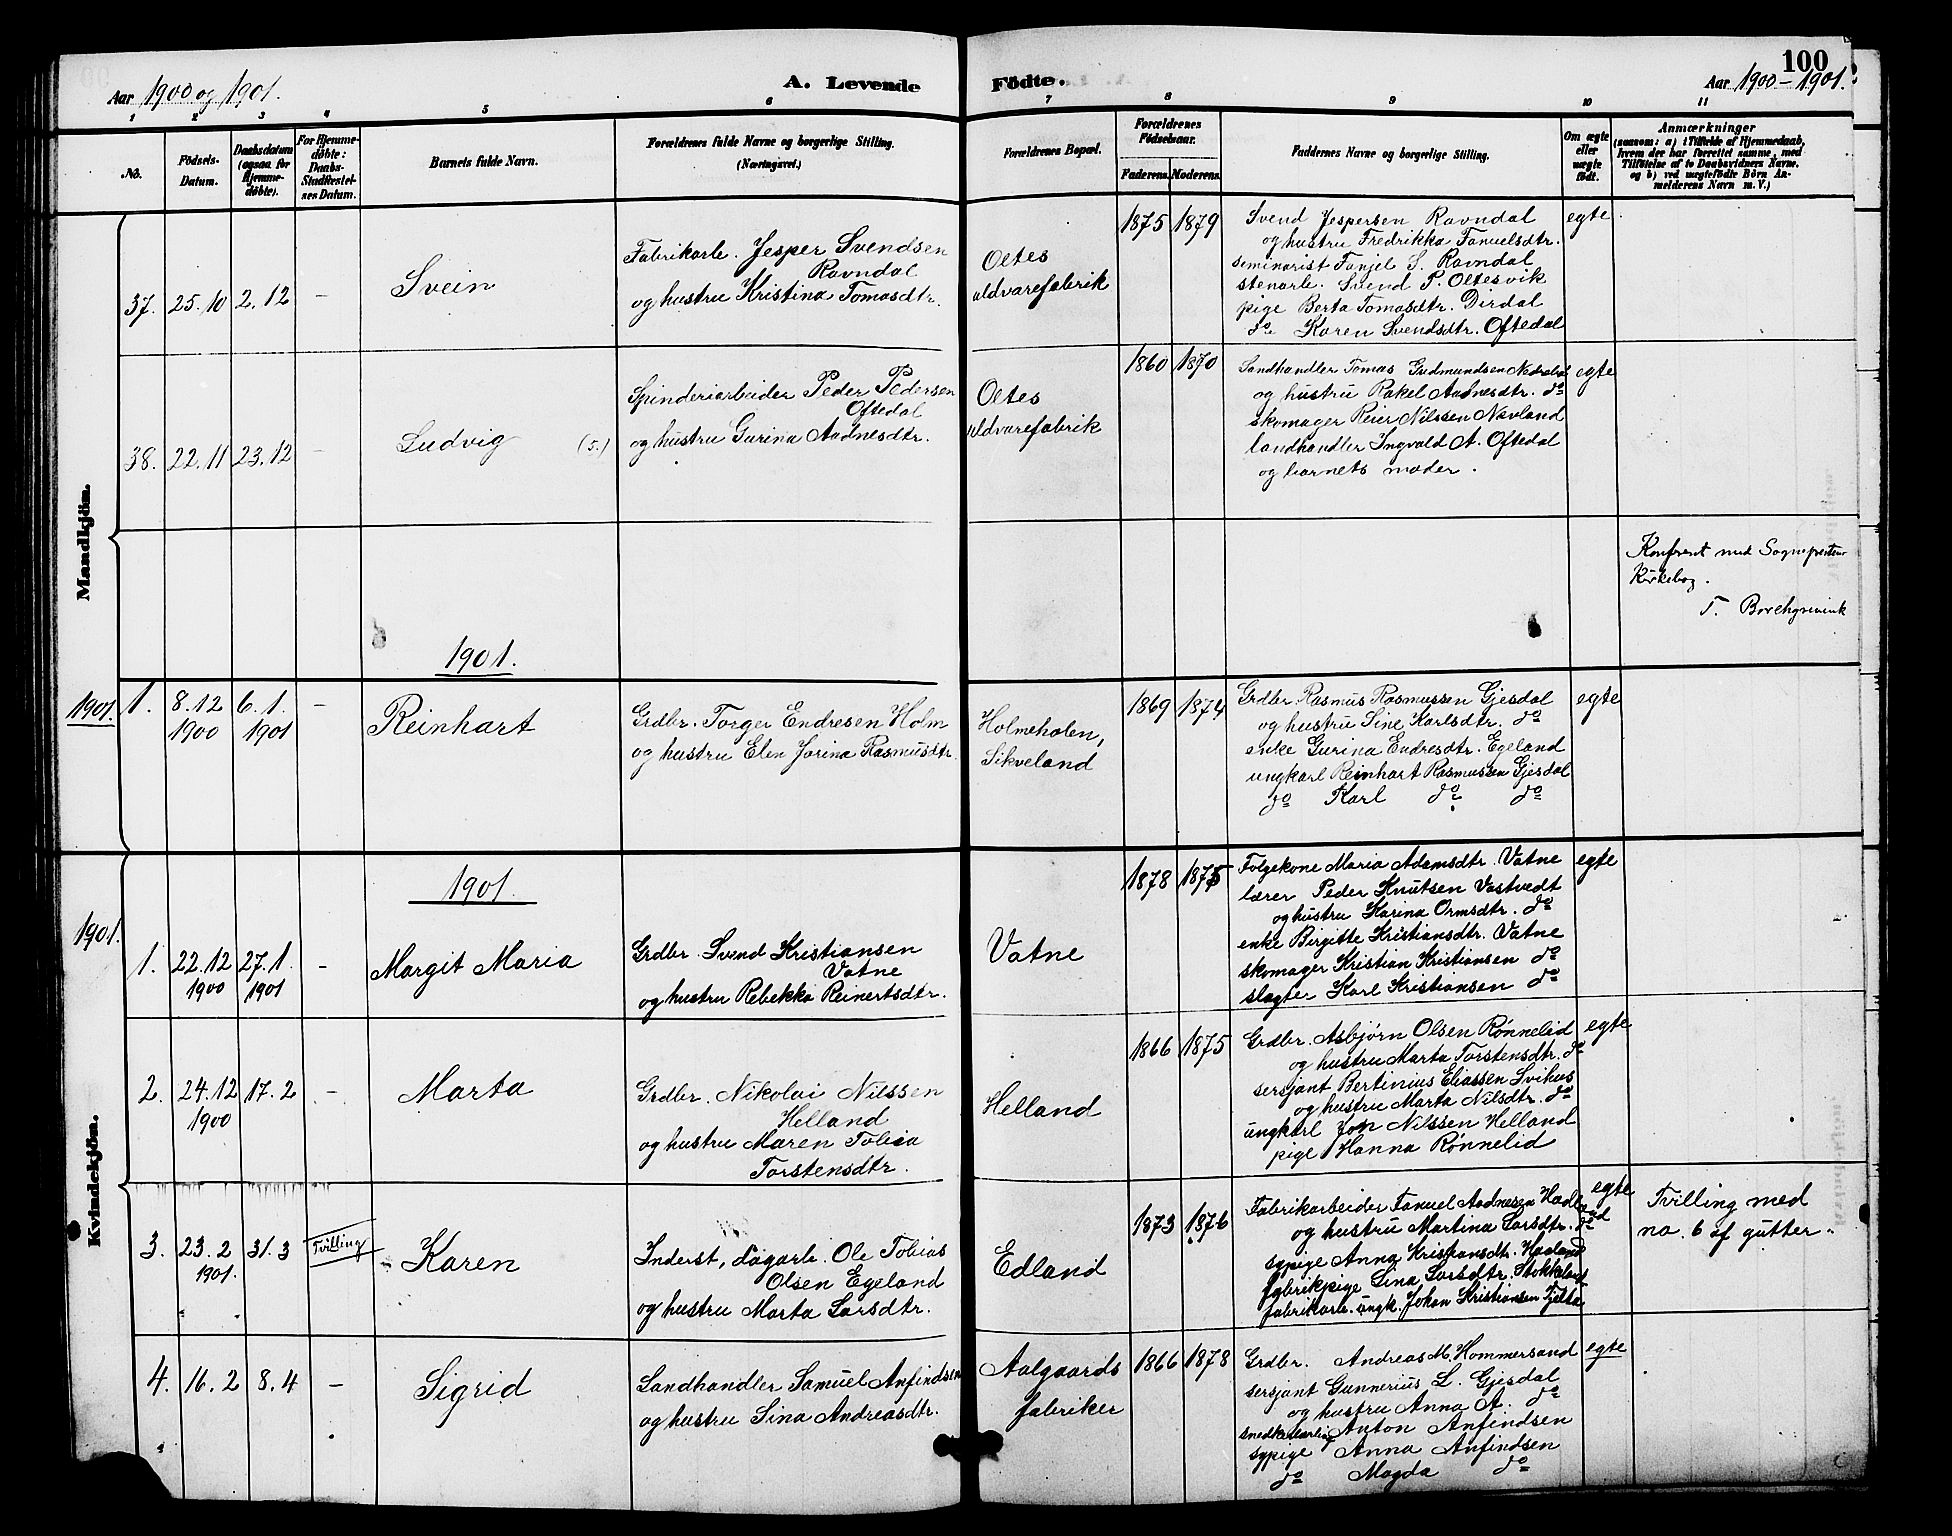 100
Aar 1900 og 1901.
A. Levende Födte.
Aar 1900-1901.
1 2 3 4 5 6 7 8 9 10 11
No.
Födsels-Datum.
Daabsdatum (ogsaa for Hjemme-døbte).
For Hjemme-döbte: Daabs-Stadfæstel-ses Datum.
Barnets fulde Navn.
Forældrenes fulde Navne og borgerlige Stilling.
(Næringsvei.)
Forældrenes Bopæl.
Forældrenes Födselsaar.
Faderens. Moderens.
Faddernes Navne og borgerlige Stilling.
Om ægte eller uægte födt.
Anmærkninger
(saasom: a) i Tilfælde af Hjemmedaab, hvem der har forrettet samme, med Tilföielse af to Daabsvidners Navne. og b) ved uægtefødte Börn Anmelderens Navn m. V.)
Mandkjön.
37. 25.10 2.12 — Svein
Fabrikarb. Jesper Svendsen
Ravndal
og hustru Kristina Tomasdtr.
Oltes
uldvarefabrik
1875 1879
Svend Jespersen Ravndal
og hustru Fredrikka Tanuelsdtr.
seminarist Tanjel S. Ravndal
stenarb. Svend P. Oltesvik
pige Berta Tomasdtr. Dirdal
do Karen Svendsdtr. Oftedal
egte
38. 22.11 23.12 — Ludvig (5.)
Spinderiarbeider Peder Pedersen
Oftedal
og hustru Gurina Aadnesdtr.
Oltes
uldvarefabrik
1860 1870
Landhandler Tomas Gudmundsen Nedrebø
og hustru Rakel Aadnesdtr. do
skomager Reier Nilssen Nevland
landhandler Ingvald A. Oftedal
og barnets moder.
egte
Konferert med Sogneprestens
Kirkebog.
T. Borchgrevink
1901.
1901. 1. 8.12 1900 6.1. 1901 — Reinhart
Grdbr. Torger Endresen Holm
og hustru Elen Jorina Rasmusdtr.
Holmeholen,
Sikveland
1869 1874
Grdbr. Rasmus Rasmussen Gjesdal
og hustru Sine Karlsdtr. do
enke Gurina Endresdtr. Egeland
ungkarl Reinhart Rasmussen Gjesdal
do Karl do do
egte
Kvindekjön.
1901.
1901.
1. 22.12 1900 27.1. 1901 — Margit Maria
Grdbr. Svend Kristiansen
Vatne
og hustru Rebekka Reinertsdtr.
Vatne
1878 1875
Folgekone Maria Adamsdtr. Vatne
lærer Peder Knutsen Vastvedt
og hustru Karina Ormsdtr. do
enke Birgitte Kristiansdtr. Vatne
skomager Kristian Kristiansen do
slagter Karl Kristiansen do
egte
2. 24.12 1900 17.2 — Marta
Grdbr. Nikolai Nilssen
Helland
og hustru Maren Tobia
Torstensdtr.
Helland
1866 1875
Grdbr. Asbjørn Olsen Rønnelid
og hustru Marta Torstensdtr. do
sersjant Bertinius Eliassen Svihus
og hustru Marta Nilsdtr. do
ungkarl Jon Nilssen Helland
pige Hanna Rønnelid
egte
3. 23.2 1901. 31.3 Tvilling Karen
Inderst, dagarb. Ole Tobias
Olsen Egeland
og hustru Marta Larsdtr.
Edland
1873 1876
Fabrikarbeider Tanuel Aadnesen Hadland
og hustru Martina Larsdtr. do
sypige Anna Kristiansdtr. Haaland
fabrikpige Lina Larsdtr. Stokkeland
fabrikarb. ungk. Johan Kristiansen Tjelta
egte
Tvilling med
no. 6 af gutter.
4. 16.2 8.4 — Sigrid
Landhandler Samuel Anfindsen
og hustru Sina Andreasdtr.
Aalgaards
fabriker
1866 1878
Grdbr. Andreas M. Hommersand
sersjant Gunnerius L. Gjesdal
og hustru Anna A. do
snedkerlærling Anton Anfindsen
sypige Anna Anfindsen
do Magda do
egte